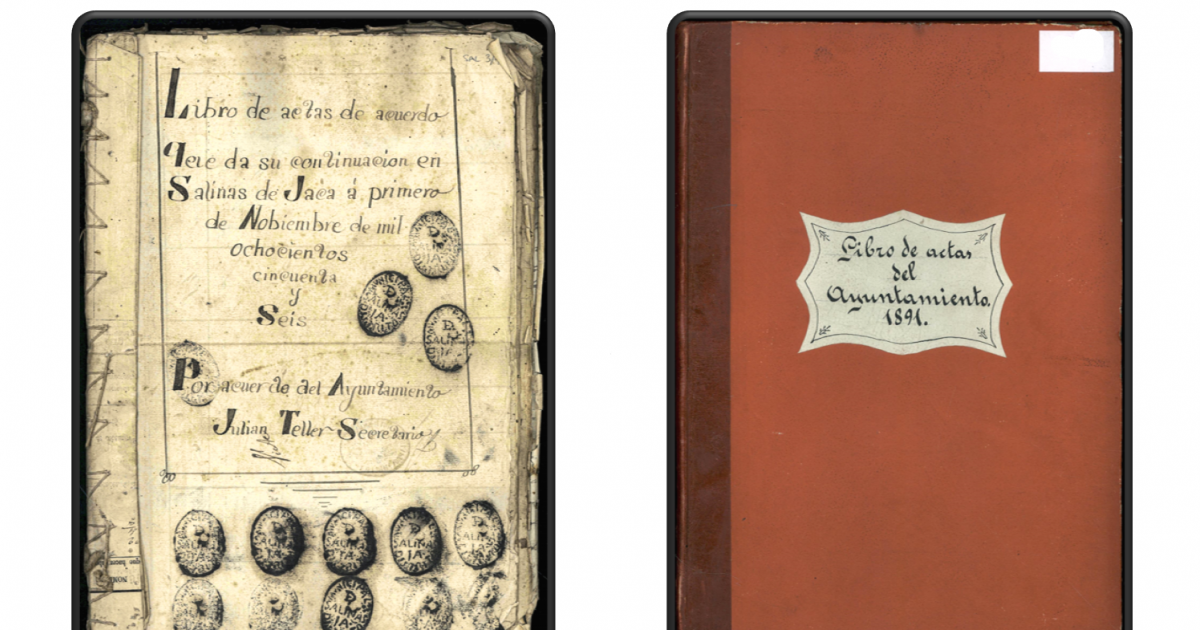 SAL 3/1
Libro de actas de acuerdo
Qeie da su continuacion en
Salinas de Jaca á primero
de Nobiembre de mil
ochocientos
cincuenta
y
Seis
Por acuerdo del Ayuntamiento
Julian Teller Secretario
D
SALINAS
JA
Libro de actas
del
Ayuntamiento.
1891.